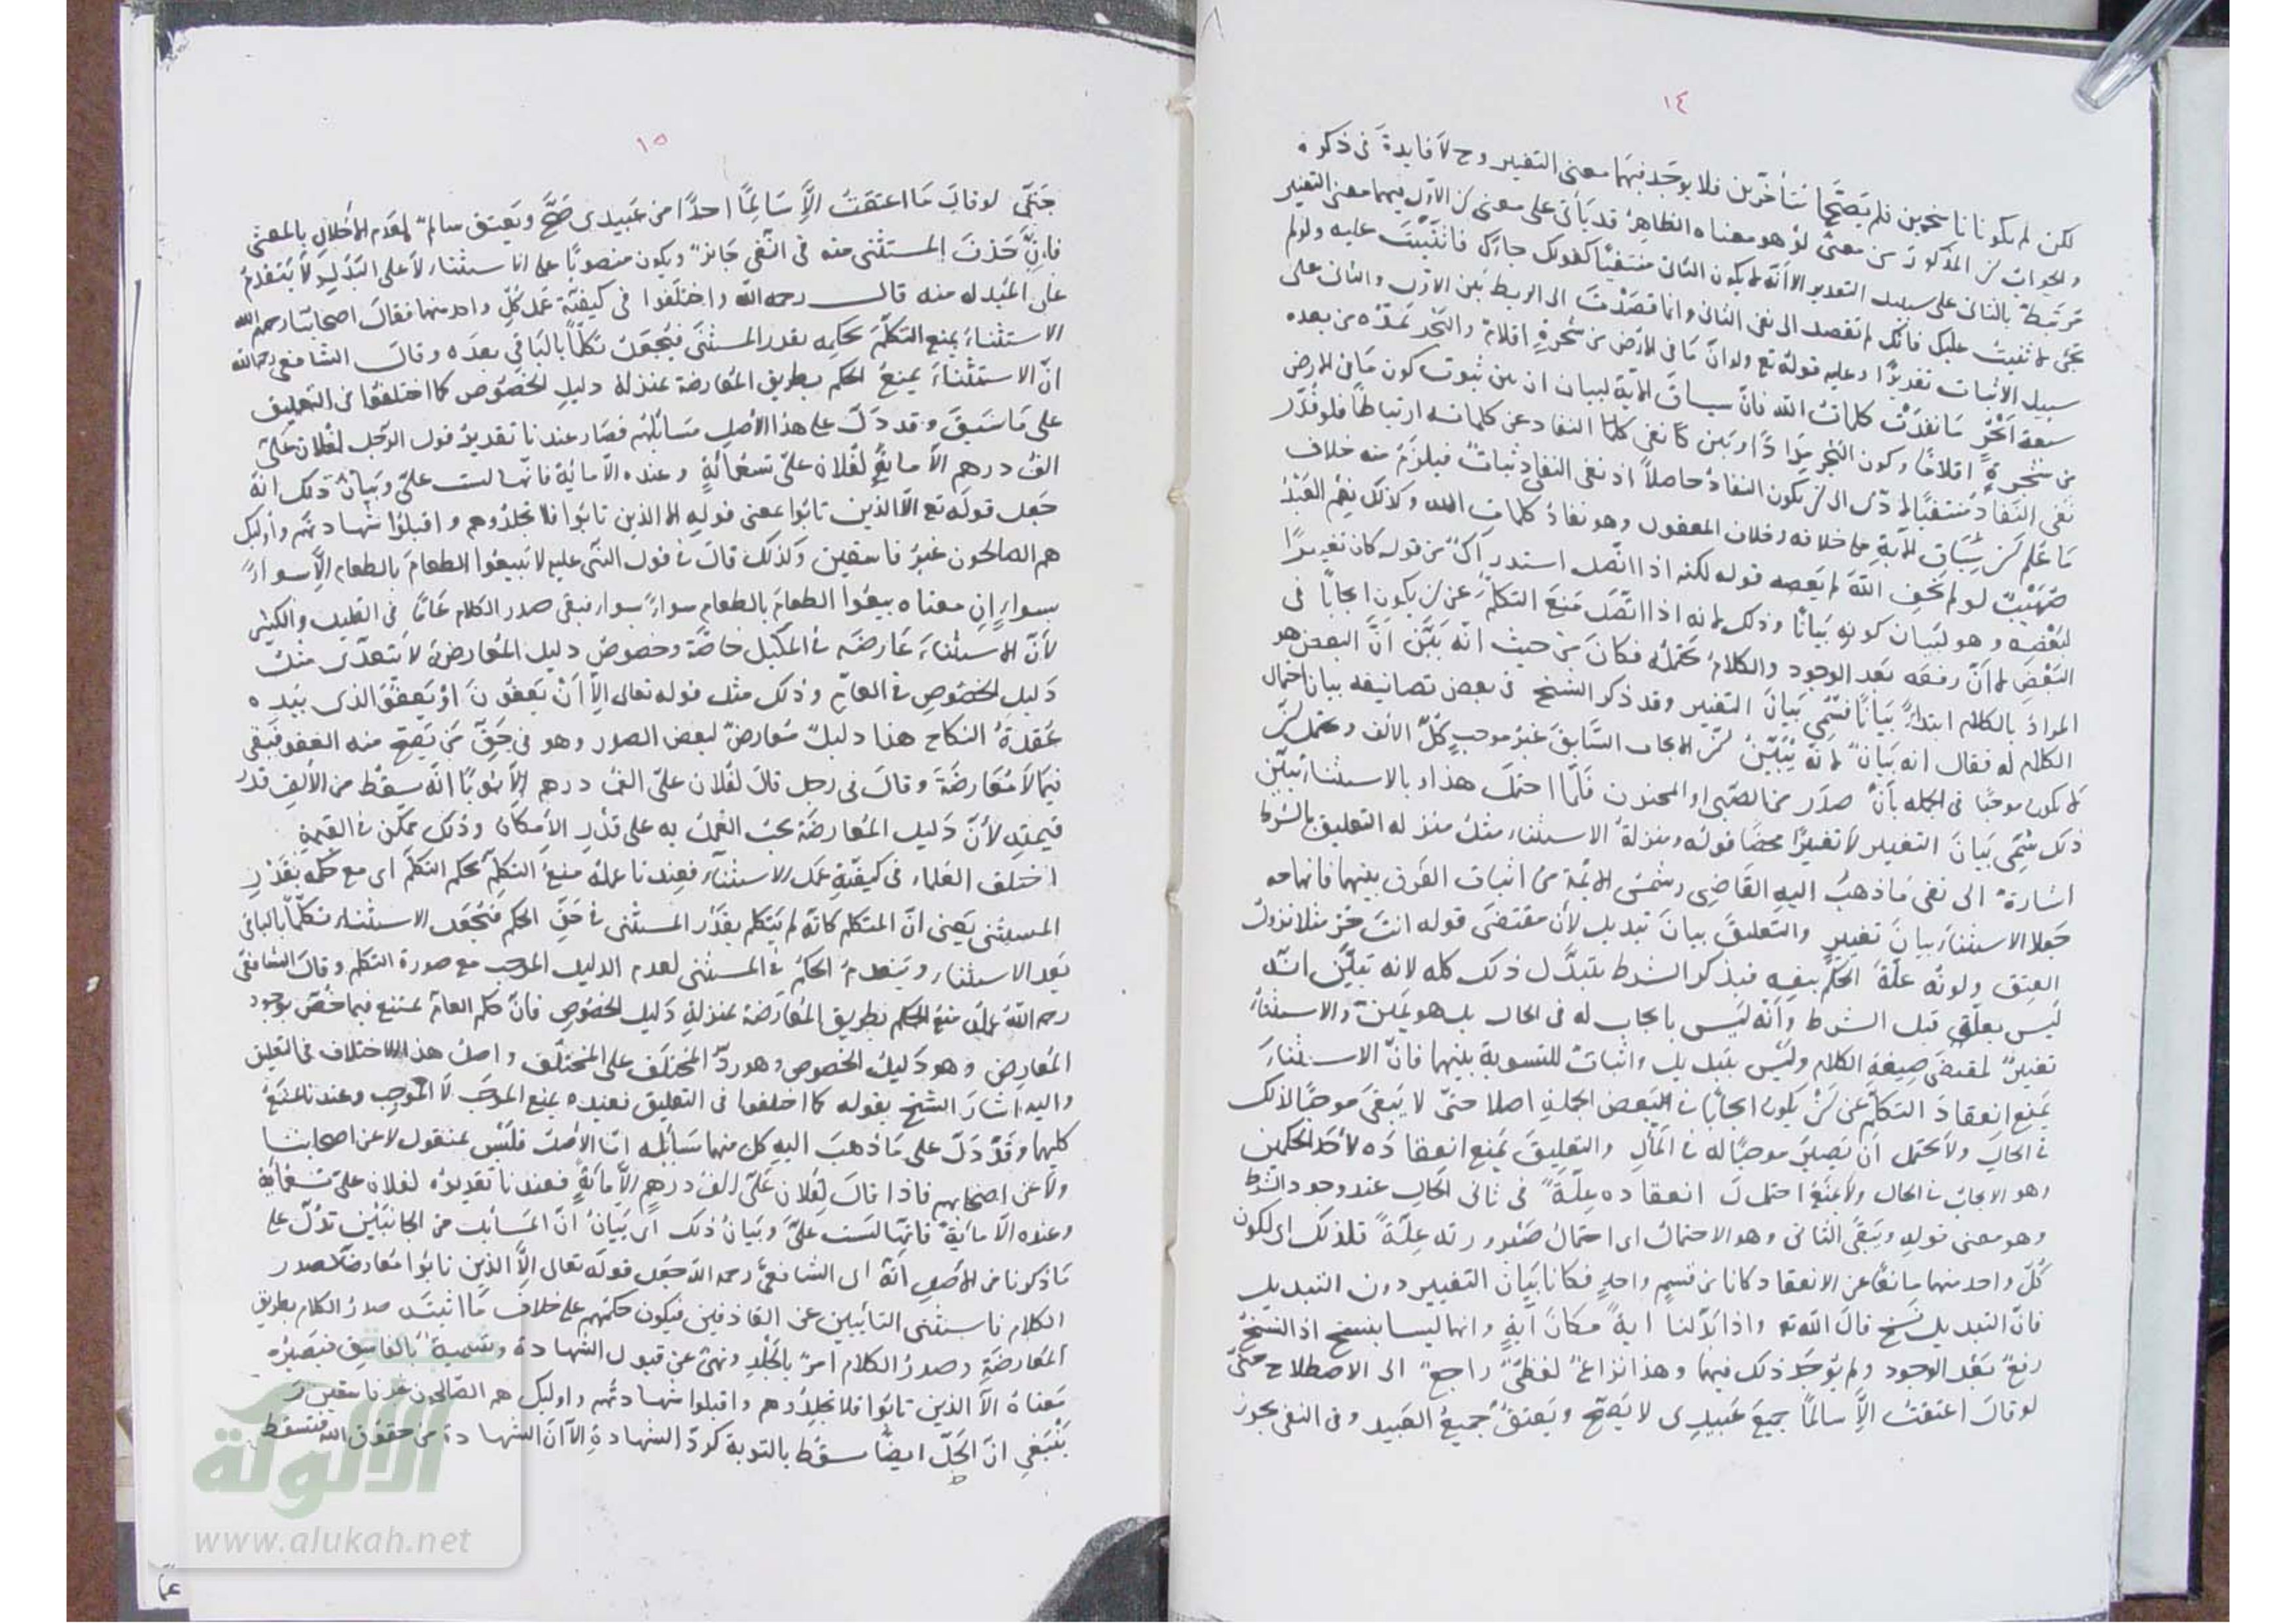 ١٤
لكن لم يكونا ناسخين فلم يصحا متأخرين فلا يوجد فيهما معنى التغيير وح لا فايدة فى ذكره
والجواب لن المذكور من معنى لو هو معناه الظاهر قد يأتى على معنى لن الاول فيهما معنى التغيير
مرتبط بالثانى على سبيل التقدير الا انه لا يكون الثانى منتفيا كقولك جارك فانتبت عليه ولو لم
تجئ لاثنيت عليك فانك لم تقصد الى نفى الثانى وانما قصدت الى الربط بين الاول والثانى على
سبيل الاثبات تقديرا وعليه قوله تع ولو ان ما فى الارض من شجرة اقلام والبحر يمده من بعده
سبعة ابحر ما نفدت كلمات الله فان سياق الآية لبيان ان بين ثبوت كون ما فى الارض
من شجرة اقلاما وكون البحر مدادا وبين نفى النفاد عن كلماته ارتباطا فلو قدر
نفى النفاد منتفيا لادى الى لن يكون النفاد حاصلا اذ نفى النفاد ثبات فيلزم منه خلاف
ما علم لن سياق الآية على خلافه وخلاف المعقول وهو نفاد كلمات الله وكذلك نعم العبد
صهيب لو لم يخف الله لم يعصه قوله لكنه اذا اتصل استدراك من قوله كان تغييرا
لبعضه وهو لبيان كونه بيانا وذلك لانه اذا اتصل منع التكلم عن لن يكون ايجابا فى
البعض لا ان رفعه بعد الوجود والكلام يحتمله فكان من حيث انه بين ان البعض هو
المراد بالكلام ابتداء بيانا فسمى بيان التغيير وقد ذكر الشيخ فى بعض تصانيفه بيان احتمال
الكلام له فقال انه بيان لانه يبين لن الايجاب السابق غير موجب كل الالف ويحتمل لن
لا يكون موجبا فى الجملة بأن صدر من الصبى او المجنون فلما احتمل هذا وبالاستثناء تبين
ذلك سمى بيان التغيير لا تغييرا محضا قوله ومنزلة الاستثناء مثل منزلة التعليق بالشرط
اشارة الى نفى ما ذهب اليه القاضى وشمس الائمة من اثبات الفرق بينهما فانهما
جعلا الاستثناء بيان تغيير والتعليق بيان تبديل لان مقتضى قوله انت حر مثلا نزول
العتق وكونه علة الحكم بنفسه فبذكر الشرط يتبدل ذلك كله لانه تبين انه
ليس بعلة قبل الشرط وانه ليس بايجاب له فى الحال بل هو يمين والاستثناء
تغيير لمقتضى صيغة الكلام وليس بتبديل واثبات للتسوية بينهما فان الاستثناء
يمنع انعقاد التكلم عن لن يكون ايجابا فى البعض الجملة اصلا حتى لا يبقى موجبا لذلك
فى الحال ولا يحتمل ان يصير موجبا له فى المآل والتعليق يمنع انعقاده لاحد الحكمين
وهو الايجاب فى الحال ولا يمنع احتمال انعقاده علة فى ثانى الحال عند وجود الشرط
وهو معنى قوله ويبقى الثانى وهو الاحتمال اى احتمال صيرورته علة فلذلك اى لكون
كل واحد منهما مانعا عن الانعقاد كانا من قسم واحد فكانا بيان التغيير دون التبديل
فان التبديل نسخ قال الله تع واذا بدلنا آية مكان آية وانهما ليسا بنسخ اذ النسخ
رفع بعد الوجود ولم يوجد ذلك فيهما وهذا نزاع لفظى راجع الى الاصطلاح حتى
لو قال اعتقت الا سالما جميع عبيدى لا يصح ويعتق جميع العبيد وفى النفى يجوز
١٥
حتى لو قال ما اعتقت الا سالما احدا من عبيدى صح ويعتق سالم لعدم الاخلال بالمعنى
فان حذف المستثنى منه فى النفى جائز ويكون منصوبا على الاستثناء لا على البدل لا يتقدم
على المبدل منه قال رحمه الله واختلفوا فى كيفية عمل كل واحد منهما فقال اصحابنا رحمهم الله
الاستثناء يمنع التكلم بحكمه بقدر المستثنى فيجعل تكلما بالباقى بعده وقال الشافعى رحمه الله
ان الاستثناء يمنع الحكم بطريق المعارضة بمنزلة دليل الخصوص كما اختلفوا فى التعليق
على ما سبق وقد دل على هذا الاصل مسائلهم فصار عندنا تقدير قول الرجل لفلان على
الف درهم الا مائة لفلان على تسعمائة وعنده الا مائة فانها ليست على وبيان ذلك انه
جعل قوله تع الا الذين تابوا بمعنى قوله الا الذين تابوا فلا تجلدوهم واقبلوا شهادتهم واوليك
هم الصالحون غير فاسقين وكذلك قال فى قول النبى عليه لا تبيعوا الطعام بالطعام الا سواء
بسواء ان معناه بيعوا الطعام بالطعام سواء بسواء فبقى صدر الكلام عاما فى القليل والكثير
لان الاستثناء عارضه فى المكيل خاصة وخصوص دليل المعارضة لا تتعدى مثل
دليل الخصوص فى العام وذلك مثل قوله تعالى الا ان يعفون او يعفو الذى بيده
عقدة النكاح هذا دليل معارض لبعض الصور وهو فى حق من يصح منه العفو فبقى
فيما لا معارضة وقال فى رجل قال لفلان على الف درهم الا ثوبا انه سقط من الالف قدر
قيمته لان دليل المعارضة يجب العمل به على قدر الامكان وذلك ممكن فى القيمة
اختلف العلماء فى كيفية عمل الاستثناء فعندنا عمله منع التكلم بحكم التكلم اى مع حكمه بقدر
المستثنى يعنى ان المتكلم كانه لم يتكلم بقدر المستثنى فى حق الحكم فيجعل الاستثناء تكلما بالباقى
بعد الاستثناء وينعدم الحكم فى المستثنى لعدم الدليل الموجب مع صورة التكلم وقال الشافعى
رحمه الله عمله منع الحكم بطريق المعارضة بمنزلة دليل الخصوص فان حكم العام يمتنع فيما خص بوجود
المعارض وهو دليل الخصوص وهو رد المختلف على المختلف واصل هذا الاختلاف فى التعليق
واليه اشار الشيخ بقوله كما اختلفوا فى التعليق فعنده يمنع الموجب لا الموجب وعندنا يمنع
كليهما وقد دل على ما ذهب اليه كل منهما مسائله اما الاصل فليس بمنقول لا عن اصحابنا
ولا عن اصحابهم فاذا قال لفلان على الف درهم الا مائة فعندنا تقديره لفلان على تسعمائة
وعنده الا مائة فانها ليست على وبيان ذلك اى بيان ان المسائل من الجانبين تدل على
ما ذكرنا من الاصل انه اى الشافعى رحمه الله جعل قوله تعالى الا الذين تابوا معارضا لصدر
الكلام فاستثنى التائبين عن القاذفين فيكون حكمهم على خلاف ما اثبته صدر الكلام بطريق
المعارضة وصدر الكلام امر بالجلد ونهى عن قبول الشهادة وتسمية بالفاسق فيصير
معناه الا الذين تابوا فلا تجلدوهم واقبلوا شهادتهم واوليك هم الصالحون غير فاسقين
ينبغى ان الجلد ايضا سقط بالتوبة كرد الشهادة الا ان الشهادة من حقوق الله فتسقط
شبكة
الألوكة
www.alukah.net